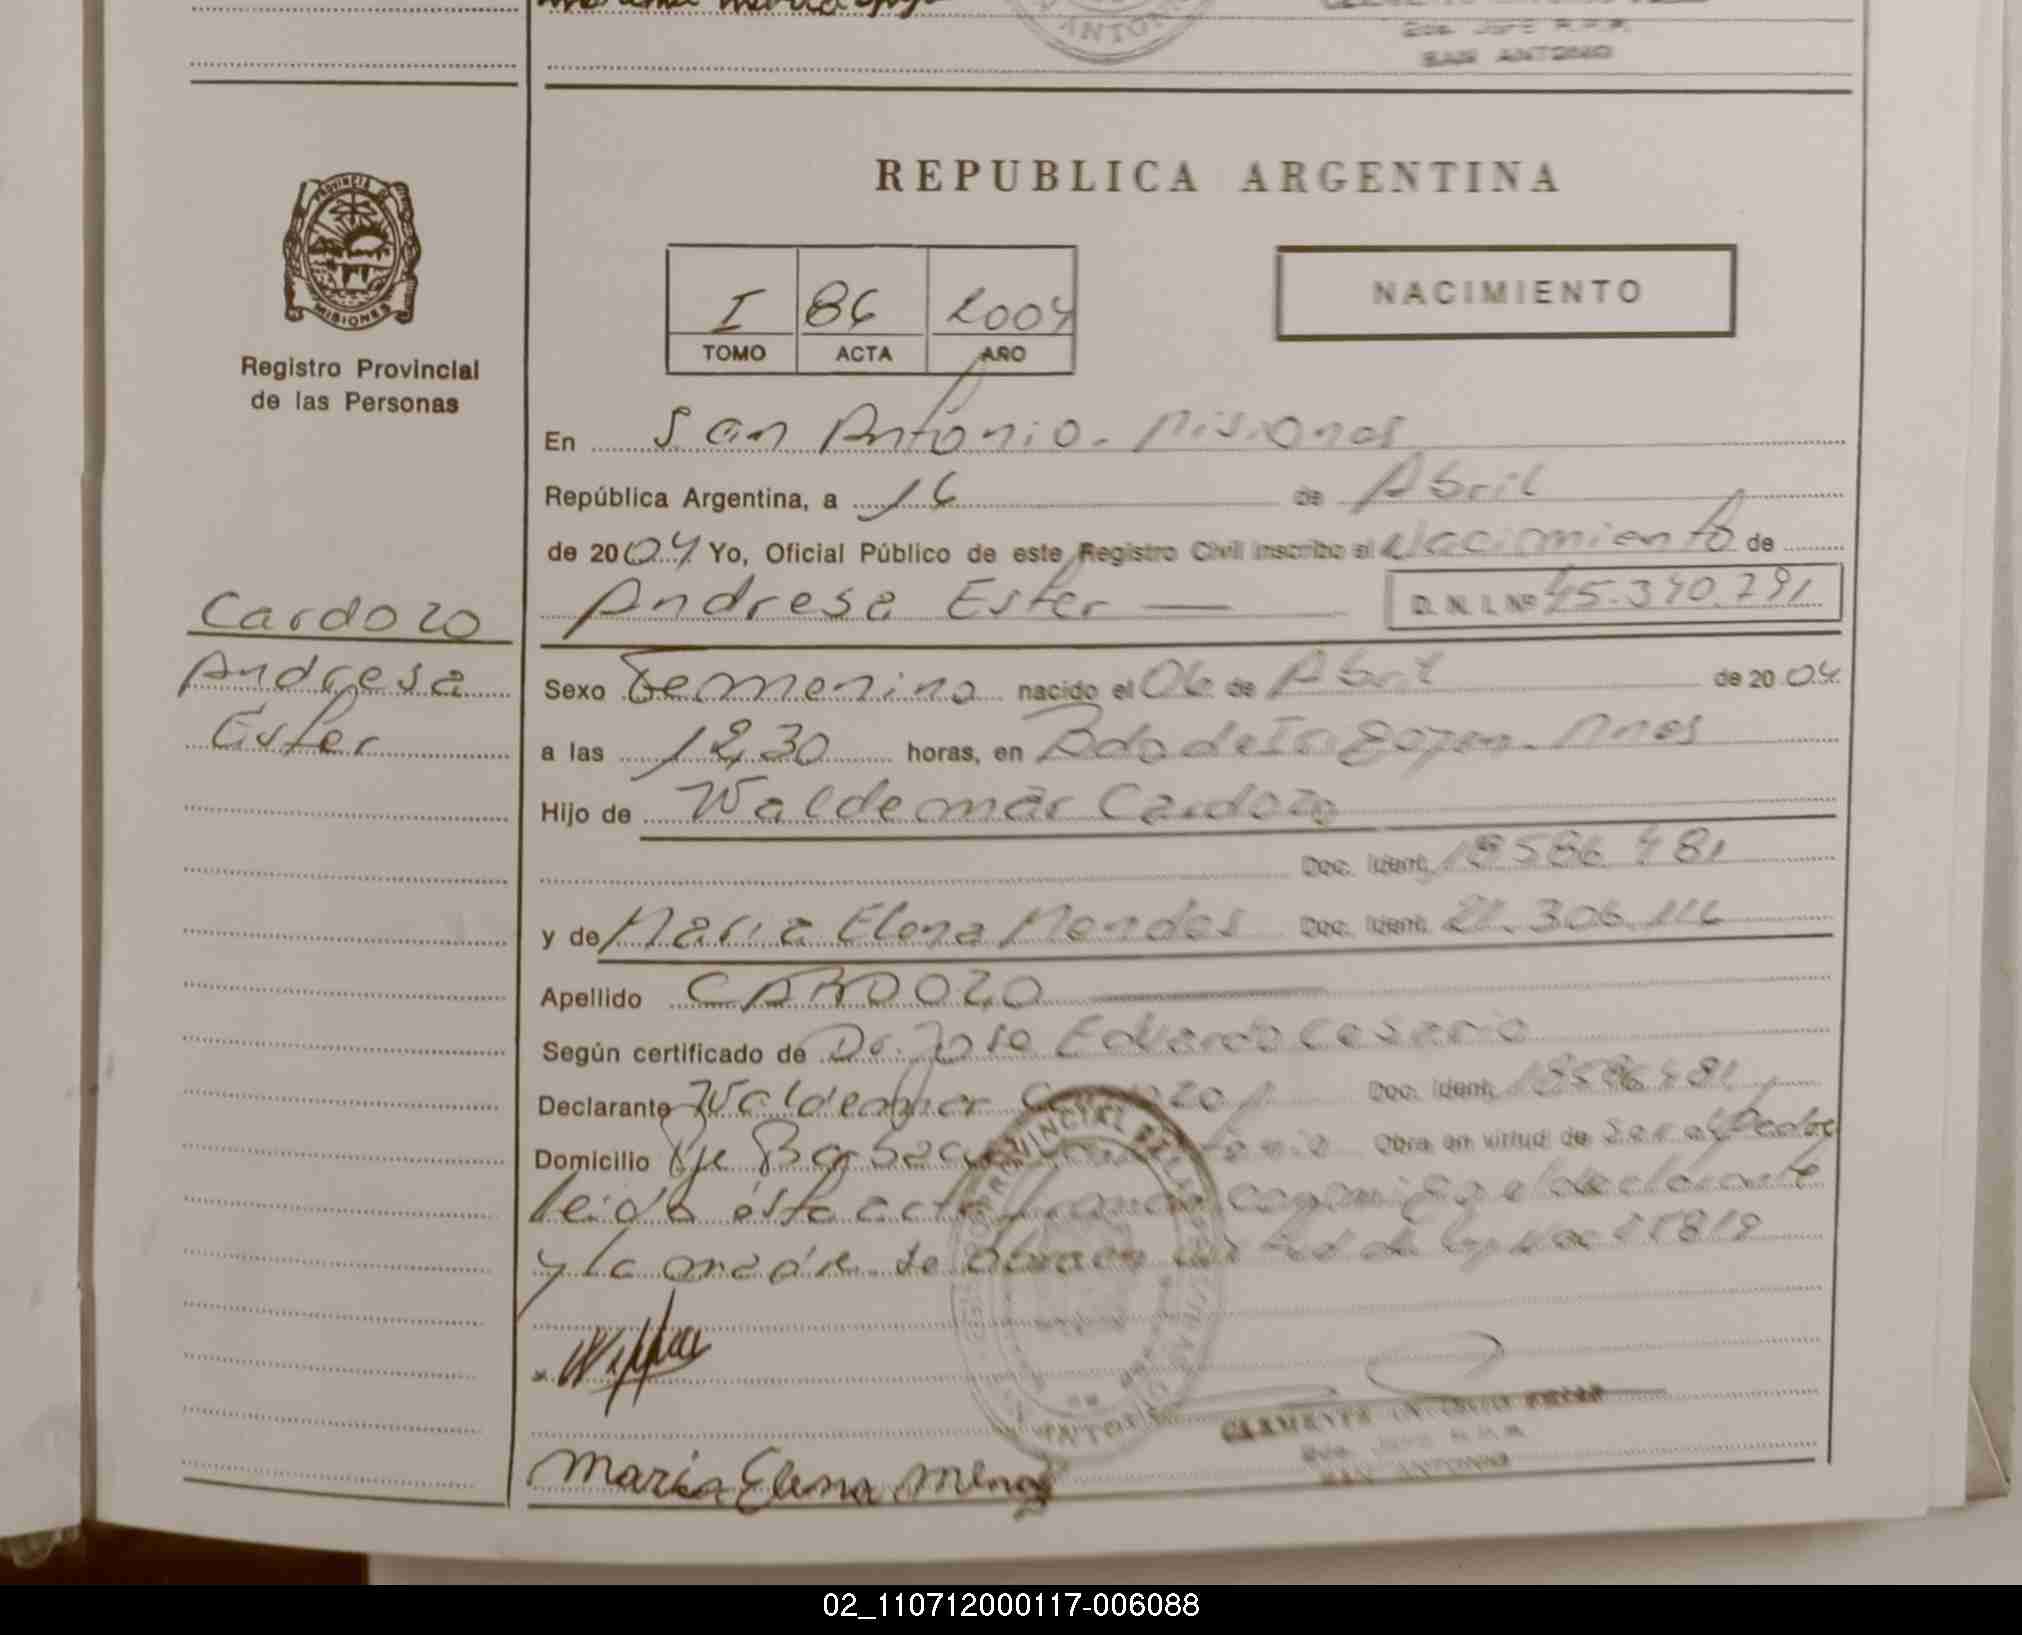 2da. Jefe R.P.P.
SAN ANTONIO
PROVINCIA DE
MISIONES
Registro Provincial
de las Personas
REPUBLICA ARGENTINA
I 86 2004
TOMO ACTA AÑO
NACIMIENTO
En San Antonio - Misiones
República Argentina, a 16 de Abril
de 2004 Yo, Oficial Público de este Registro Civil inscribo el Nacimiento de
Andresa Ester D. N. I. Nº 45.340.791
Cardozo
Andresa
Ester
Sexo Femenino nacido el 06 de Abril de 2004
a las 12,30 horas, en Bdo de Irigoyen - Mnes
Hijo de Waldemar Cardozo
Doc. Ident. 18586 481
y de Maria Elena Mendes Doc. Ident. 21.306.116
Apellido CARDOZO
Según certificado de Dr. Jose Eduardo Cesario
Declarante Waldemar Cardozo Doc. Ident. 18586481
Domicilio Pje Obra en virtud de Ser el Padre
leida ésta acta firman conmigo el declarante
y la madre
Maria Elena
SAN ANTONIO
02_110712000117-006088